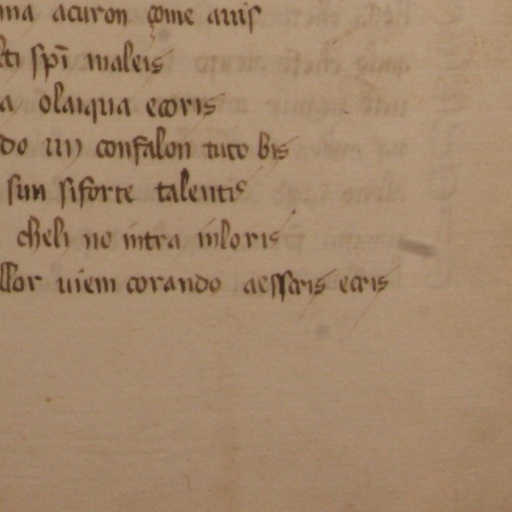 ma acuron come auis
lti spī maleis
a olaiqua ecoris
do un confalon tuto bis
sun siforte talentis
cheli no intra inloris
llor uiem corando aesscris ecris